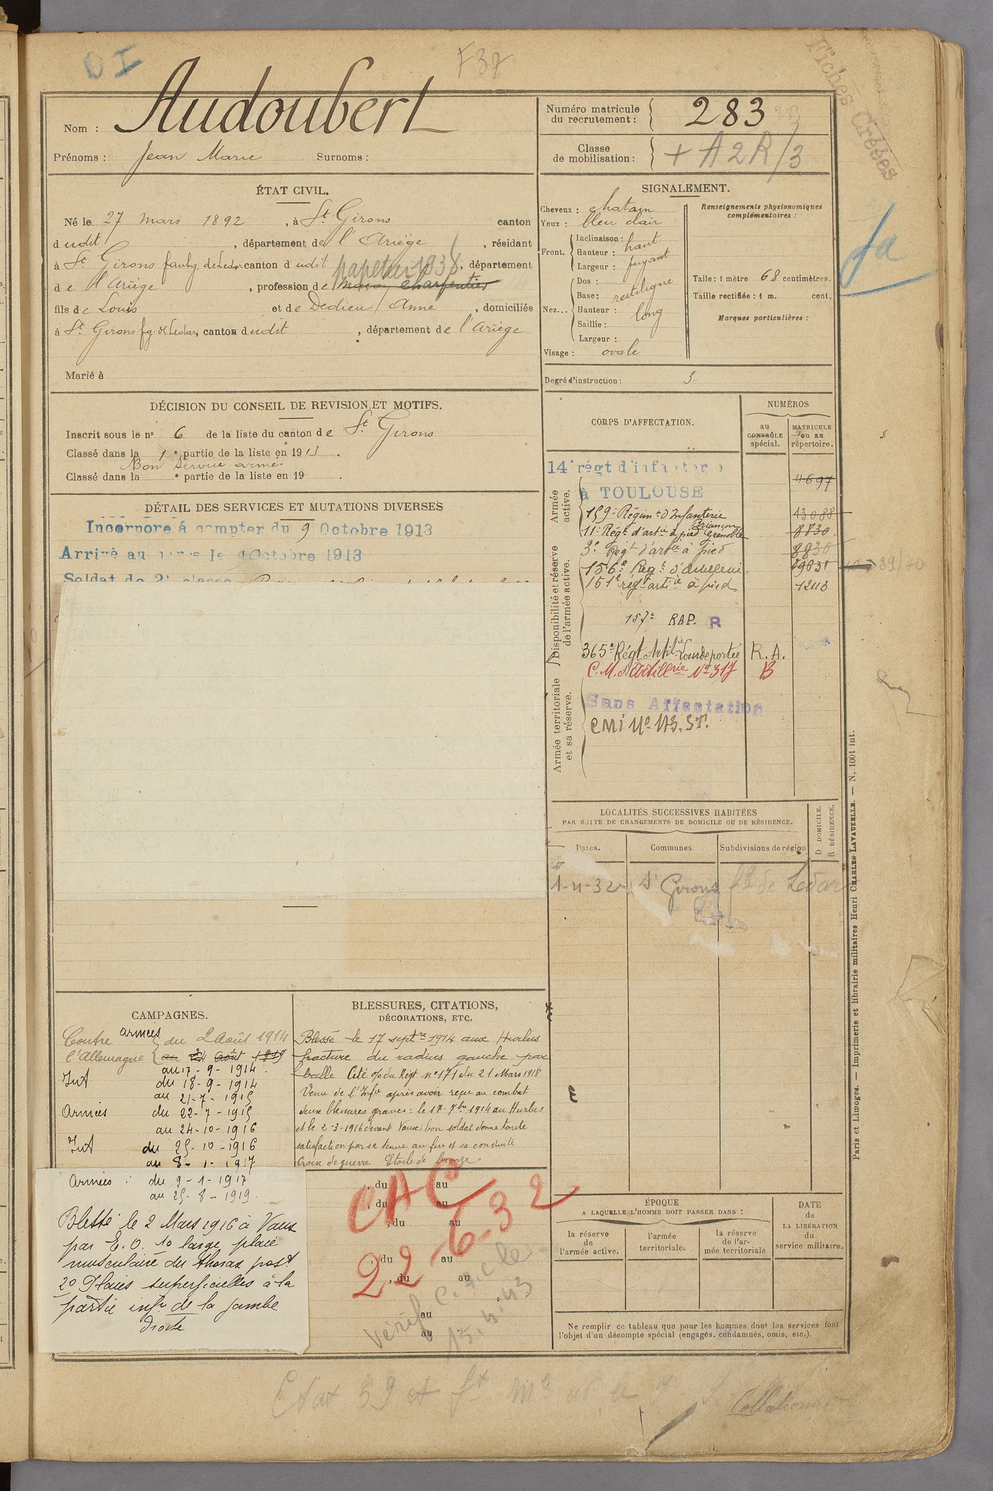 DI
F37
Fiches Créées
Nom : Audoubert
Prénoms : Jean Marie Surnoms :
Numéro matricule du recrutement : 283
Classe de mobilisation : + A2R/3
ÉTAT CIVIL.
Né le 27 mars 1892, à St Girons canton
d udit, département de l'Ariège, résidant
à St Girons faubg de Ledar canton d udit, département
papetier 1938
de l'Ariège, profession de charpentier
fils de Louis et de Dedieu Anne, domiciliés
à St Girons fg de Ledar, canton dudit, département de l'Ariège
Marié à
SIGNALEMENT.
Cheveux : chatain
Yeux : bleu clair
Front. Inclinaison : haut
Hauteur :
Largeur : fuyant
Nez... Dos :
Base : rectiligne
Hauteur : long
Saillie :
Largeur :
Visage : ovale
Renseignements physionomiques complémentaires :
Taille : 1 mètre 68 centimètres.
Taille rectifiée : 1 m. cent.
Marques particulières :
Degré d'instruction : 3
DÉCISION DU CONSEIL DE REVISION ET MOTIFS.
Inscrit sous le n° 6 de la liste du canton de St Girons
Classé dans la 1e partie de la liste en 1913.
Bon service armé.
Classé dans la e partie de la liste en 19 .
DÉTAIL DES SERVICES ET MUTATIONS DIVERSES
Incorporé à compter du 9 Octobre 1913
Arrivé au corps le Octobre 1913
Soldat de 2e classe
CORPS D'AFFECTATION.
NUMÉROS
au contrôle spécial.
MATRICULE ou au répertoire.
Armée active.
14e régt d'infanterie 4697
à TOULOUSE
159e Régim. d'Infanterie Briançon 13088
11e Régt d'artie à pied Grenoble 8830
Disponibilité et réserve de l'armée active.
3e Régt d'artie à pied 8830
156e Régt d'artillerie
151e régt artie à pied
157e RAP. R
365e Régt Artillie Lourde portée R.A.
Armée territoriale et sa réserve.
C. M. d'Artillerie No 317 B
Sans Affectation
CMI No 173. ST.
LOCALITÉS SUCCESSIVES HABITÉES
PAR SUITE DE CHANGEMENTS DE DOMICILE OU DE RÉSIDENCE.
Dates. Communes. Subdivisions de région D DOMICILE. R RÉSIDENCE.
1-4-32 St Girons fg de Ledar
CAMPAGNES.
Contre l'Allemagne
armées du 2 Août 1914
au 17-9-1914
Int du 18-9-1914
au 21-7-1915
Armées du 22-7-1915
au 24-10-1916
Int du 25-10-1916
au 8-1-1917
Armées : du 9-1-1917
au 25-8-1919.
Blessé le 2 Mars 1916 à Vaux
par E. O. 1o large plaie
musculaire du thorax post
2o Plaies superficielles à la
partie infre de la jambe
droite
BLESSURES, CITATIONS,
DÉCORATIONS, ETC.
Blessé le 17 septbre 1914 aux Hurlus
fracture du radius gauche par
balle Cité O/ du Régt no 171 du 21 Mars 1918
Venu de l'Infie après avoir reçu au combat
deux blessures graves : le 17-7bre 1914 au Hurlus
et le 2-3-1916 devant Vaux bon soldat donne toute
satisfaction par sa tenue au feu et sa conduite
Croix de guerre Etoile de bronze
, du au
, du au
, du au
, du au
, du au
au
au
CAC
22-6-32
Vérif
ÉPOQUE
A LAQUELLE L'HOMME DOIT PASSER DANS :
la réserve de l'armée active.
l'armée territoriale.
la réserve de l'armée territoriale
DATE de LA LIBÉRATION du service militaire.
Ne remplir ce tableau que pour les hommes dont les services font
l'objet d'un décompte spécial (engagés, condamnés, omis, etc.).
Paris et Limoges. — Imprimerie et librairie militaires Henri CHARLES-LAVAUZELLE. — N. 1001 int.
Collationné